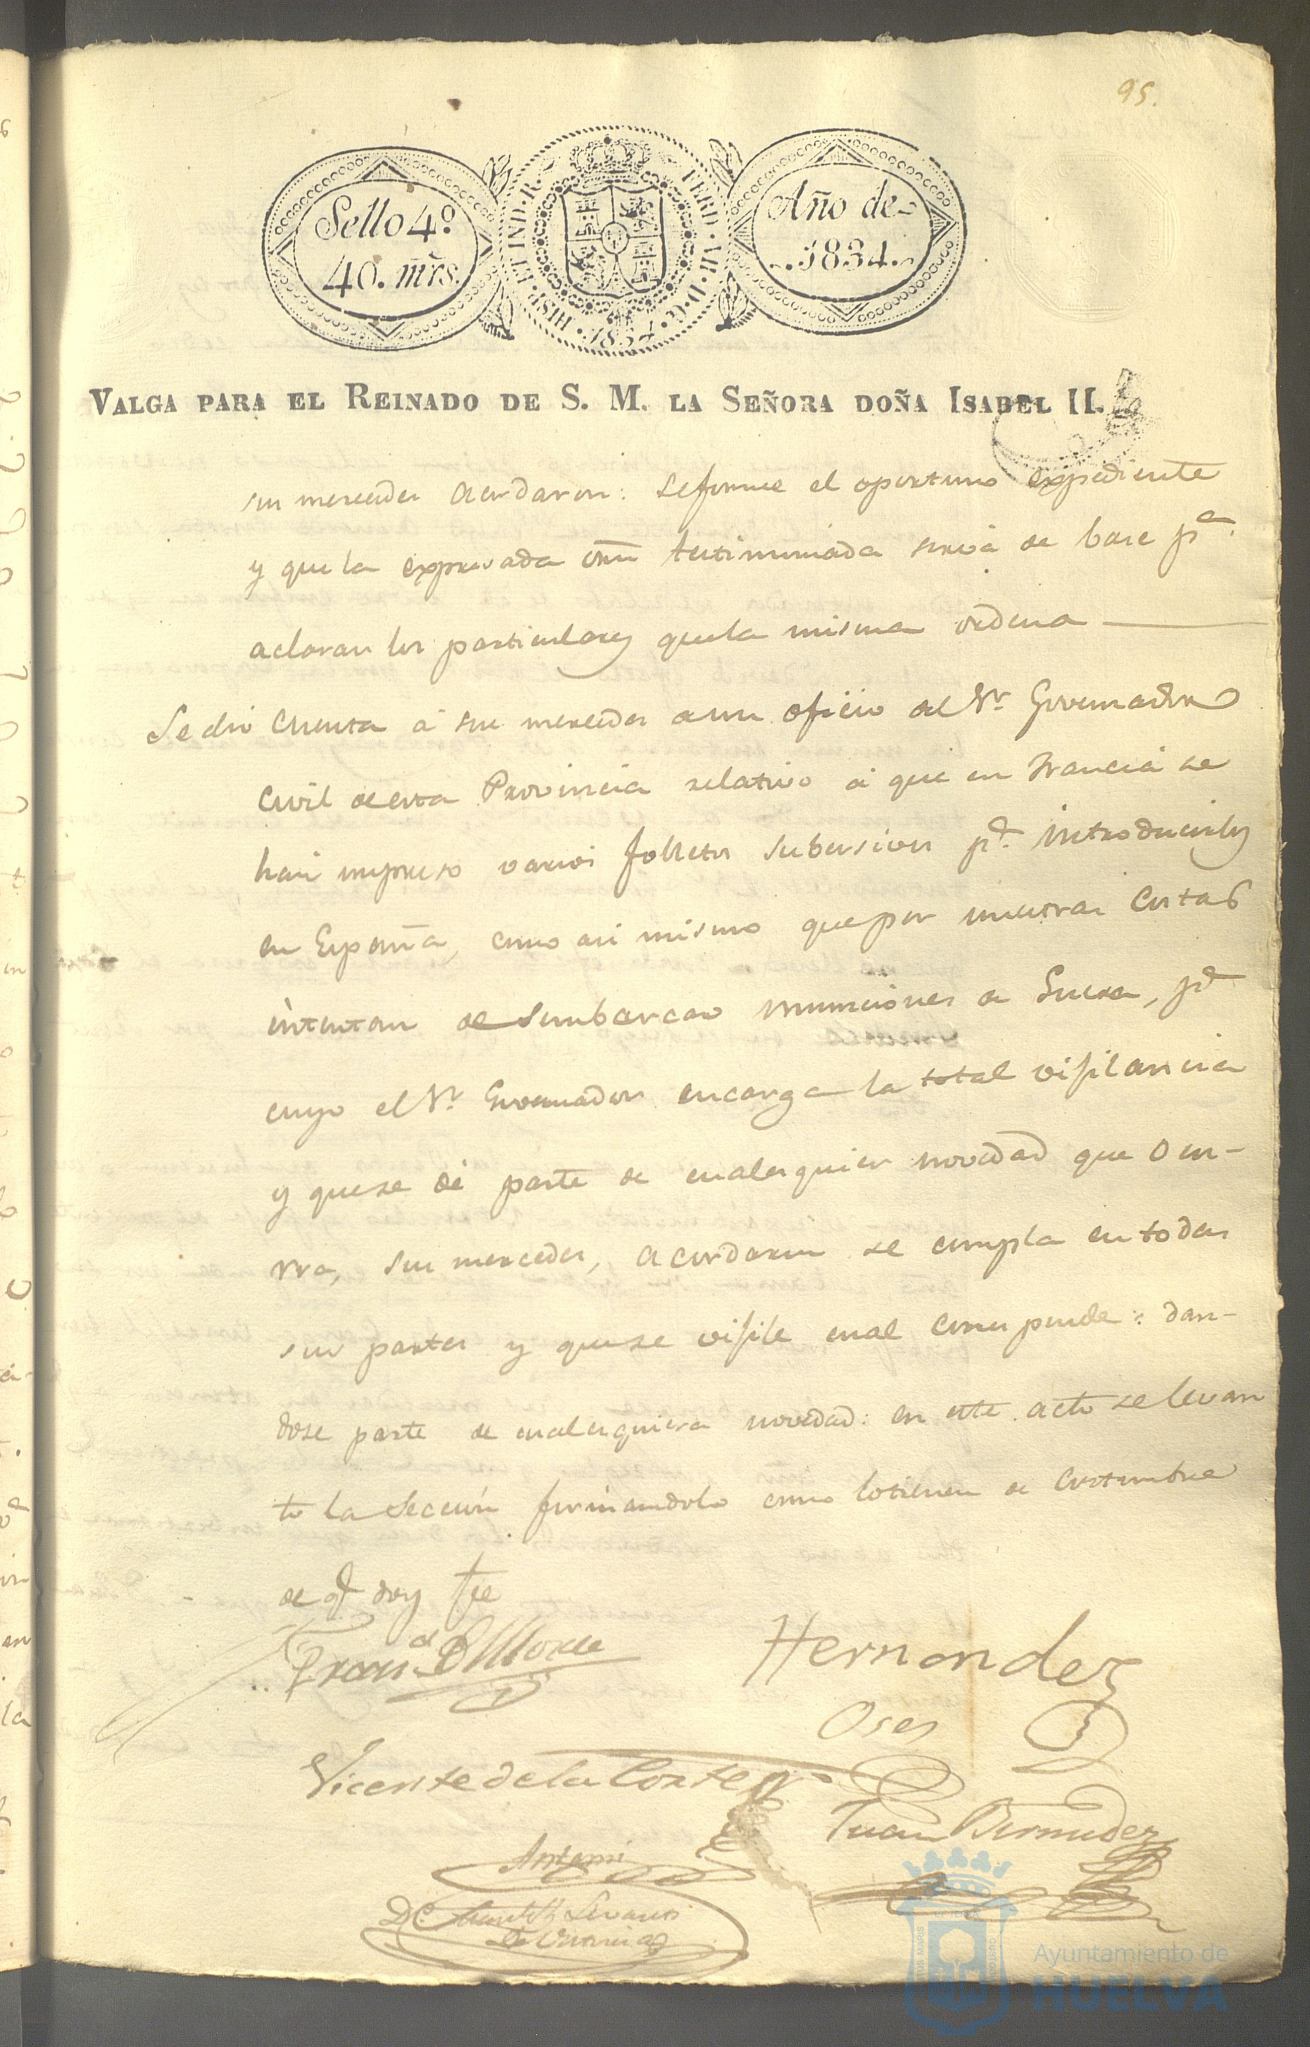 95.
Sello 4º
40. mrs.
HISP. ET IND. R.
FERD. VII. D. G.
1834
Año de
1834.
VALGA PARA EL REINADO DE S. M. LA SEÑORA DOÑA ISABEL II.
sus mercedes acordaron: se forme el oportuno expediente
y que la expresada orn testimoniada sirva de base pª.
aclarar los particulares que la misma ordena
Se dio cuenta á sus mercedes de un oficio del Sr. Governador
Civil de esta Provincia relativo á que en Francia se
han impreso varios folletos subersivos pª. introducirlos
en España, como asi mismo que por nuestras Costas
intentan desembarcar municiones de Guerra, pª
cuyo el Sr. Governador encarga la total vijilancia
y que se dé parte de qualesquier novedad que ocur-
rra, sus mercedes, acordaron se cumpla en todas
sus partes y que se vijile cual corresponde: dan-
dose parte de cualesquiera novedad: en este acto se levan
to la Seccion firmandolo como lo tienen de costumbre
de q doy fe
Hernandez
Oses
Vicente de la Corte
Juan Bermudez
Antemi
Ayuntamiento de
HUELVA